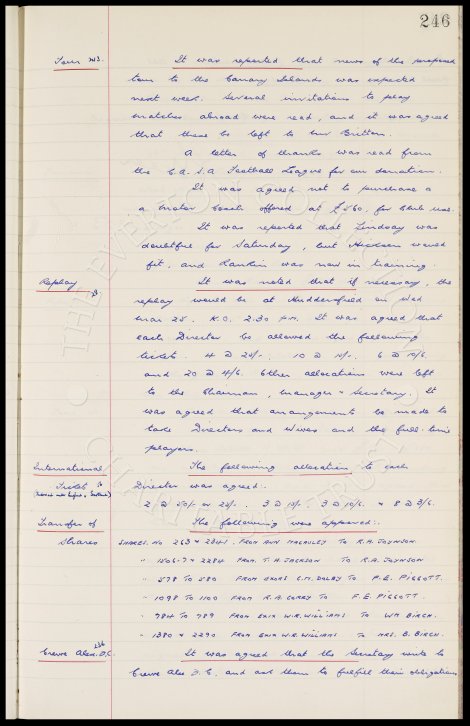 246
Tour 243. It was reported that news of the proposed
tour to the Canary Islands was expected
next week. Several invitations to play
matches abroad were read, and it was agreed
that these be left to Mr Britton.
A letter of thanks was read from
the Football League for our donation.
It was agreed not to purchase a
a motor coach offered at £560, for Club use.
It was reported that Lindsay was
doubtful for Saturday, but Hickson would
fit, and Rankin was now in training
Replay It was noted that if necessary, the
replay would be at Huddersfield on Wed
Mar 25. K.O. 2.30 p.m. It was agreed that
each Director be allowed the following
tickets. 4 @ 25/-. 10 @ 6 @ 10/6.
and 20 @ 4/6. Other allocations were left
to the Chairman, Manager & Secretary. It
was agreed that arrangements be made to
take Directors and Wives and the full-time
players.
International The following allocation to each
Tickets Director was agreed:-
2 @ 50/- or 25/-. 3 @ 3 @ 10/6. & 8 @ 3/6.
Transfer of The following were approved:-
Shares SHARES. No 263 & 2341. FROM ANN MACAULEY TO R.A. JOYNSON.
" 1506-7 & 2284 FROM T.H. JACKSON TO R.A. JOYNSON
" 578 TO 580 FROM EXORS C.M. DOLBY TO F.E. PIGGOTT.
" 1098 TO 1100 FROM R.A. CORRY TO F.E. PIGGOTT.
" 784 TO 789 FROM EXIX W.R. WILLIAMS TO WM BIRCH.
" 1380 & 2290 FROM EXIX W.R. WILLIAMS TO MRS. B. BIRCH.
Crewe Alex. F.C. 236 It was agreed that the Secretary write to
Crewe Alex F.C. and ask them to fulfil their obligations